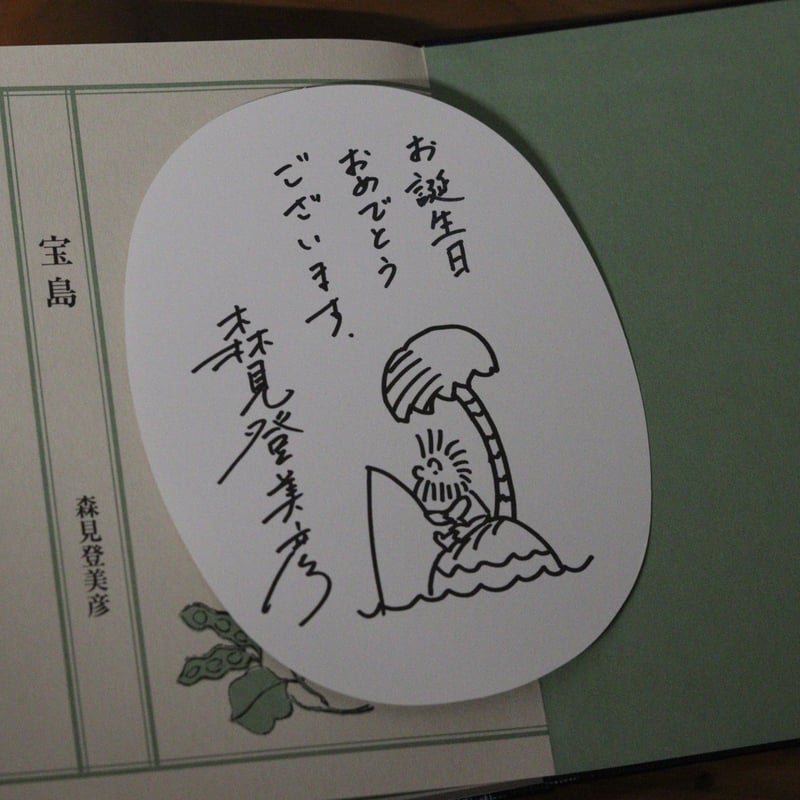 お誕生日
おめでとう
ございます.
森見登美彦
宝島
森見登美彦